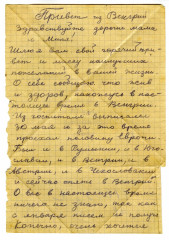 Привет из Венгрии
Здравствуйте дорогие мама
и Митя!
Шлю я вам свой горячий привет
и массу наилучших
пожеланий в вашей жизни
О себе сообщаю что жив
здоров, нахожусь в нас-
тоящее время в Венгрии
Из госпиталя выписался
30 мая и за это время
проехал половину Европы
Был и в Румынии, и в Юго
славии, и в Венгрии, и в
Австрии, и в Чехословакии
и сейчас опять в Венгрии
О вас в настоящее время
ничего не знаю, так как
с января писем не получал
Конечно, очень